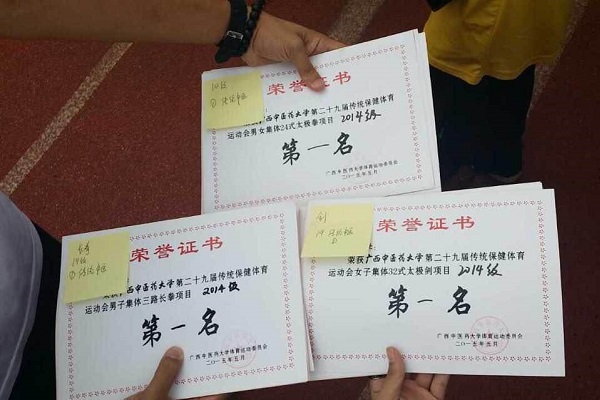 荣誉证书
荣获广西中医药大学第二十九届传统保健体育
运动会男女集体24式太极拳项目 2014级
第一名
广西中医药大学体育运动委员会
二〇一五年五月
长拳
14级
荣誉证书
荣获广西中医药大学第二十九届传统保健体育
运动会男子集体三路长拳项目 2014级
第一名
广西中医药大学体育运动委员会
二〇一五年五月
剑
荣誉证书
荣获广西中医药大学第二十九届传统保健体育
运动会女子集体32式太极剑项目 2014级
第一名
广西中医药大学体育运动委员会
二〇一五年五月